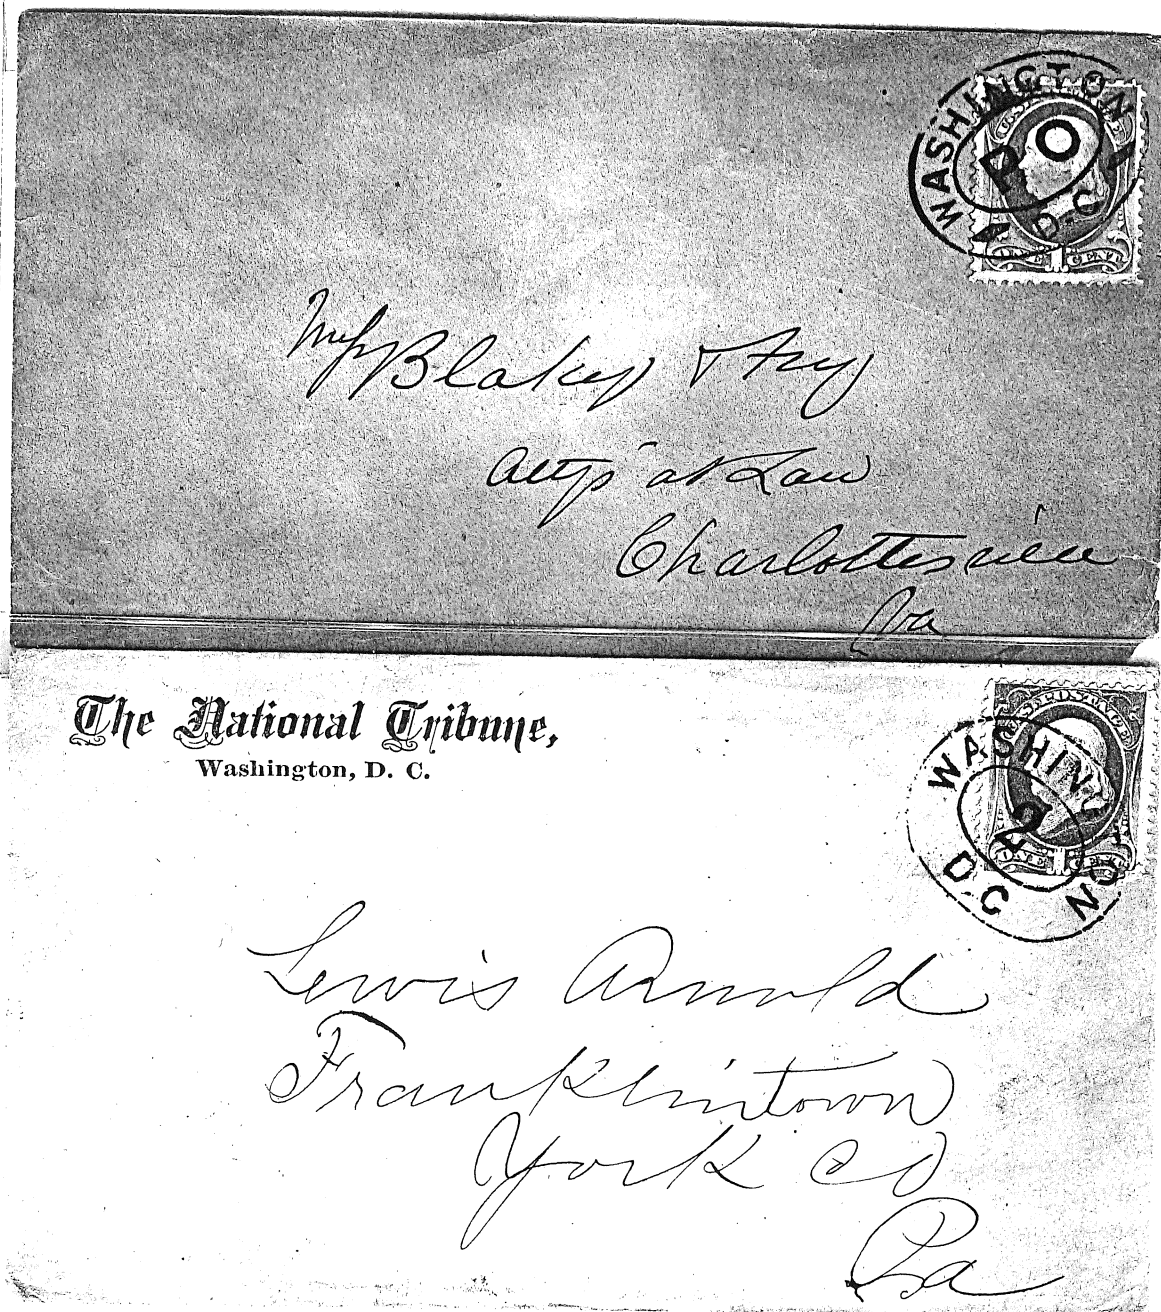 WASHINGTON
P O
D C
ONE 1 CENT
Blakey & Fry
Attys at Law
Charlottesville
Va
The National Tribune,
Washington, D. C.
U.S. POSTAGE
WASHINGTON
2
D.C
ONE 1 CENT
Lewis Arnold
Franklintown
York Co
Pa